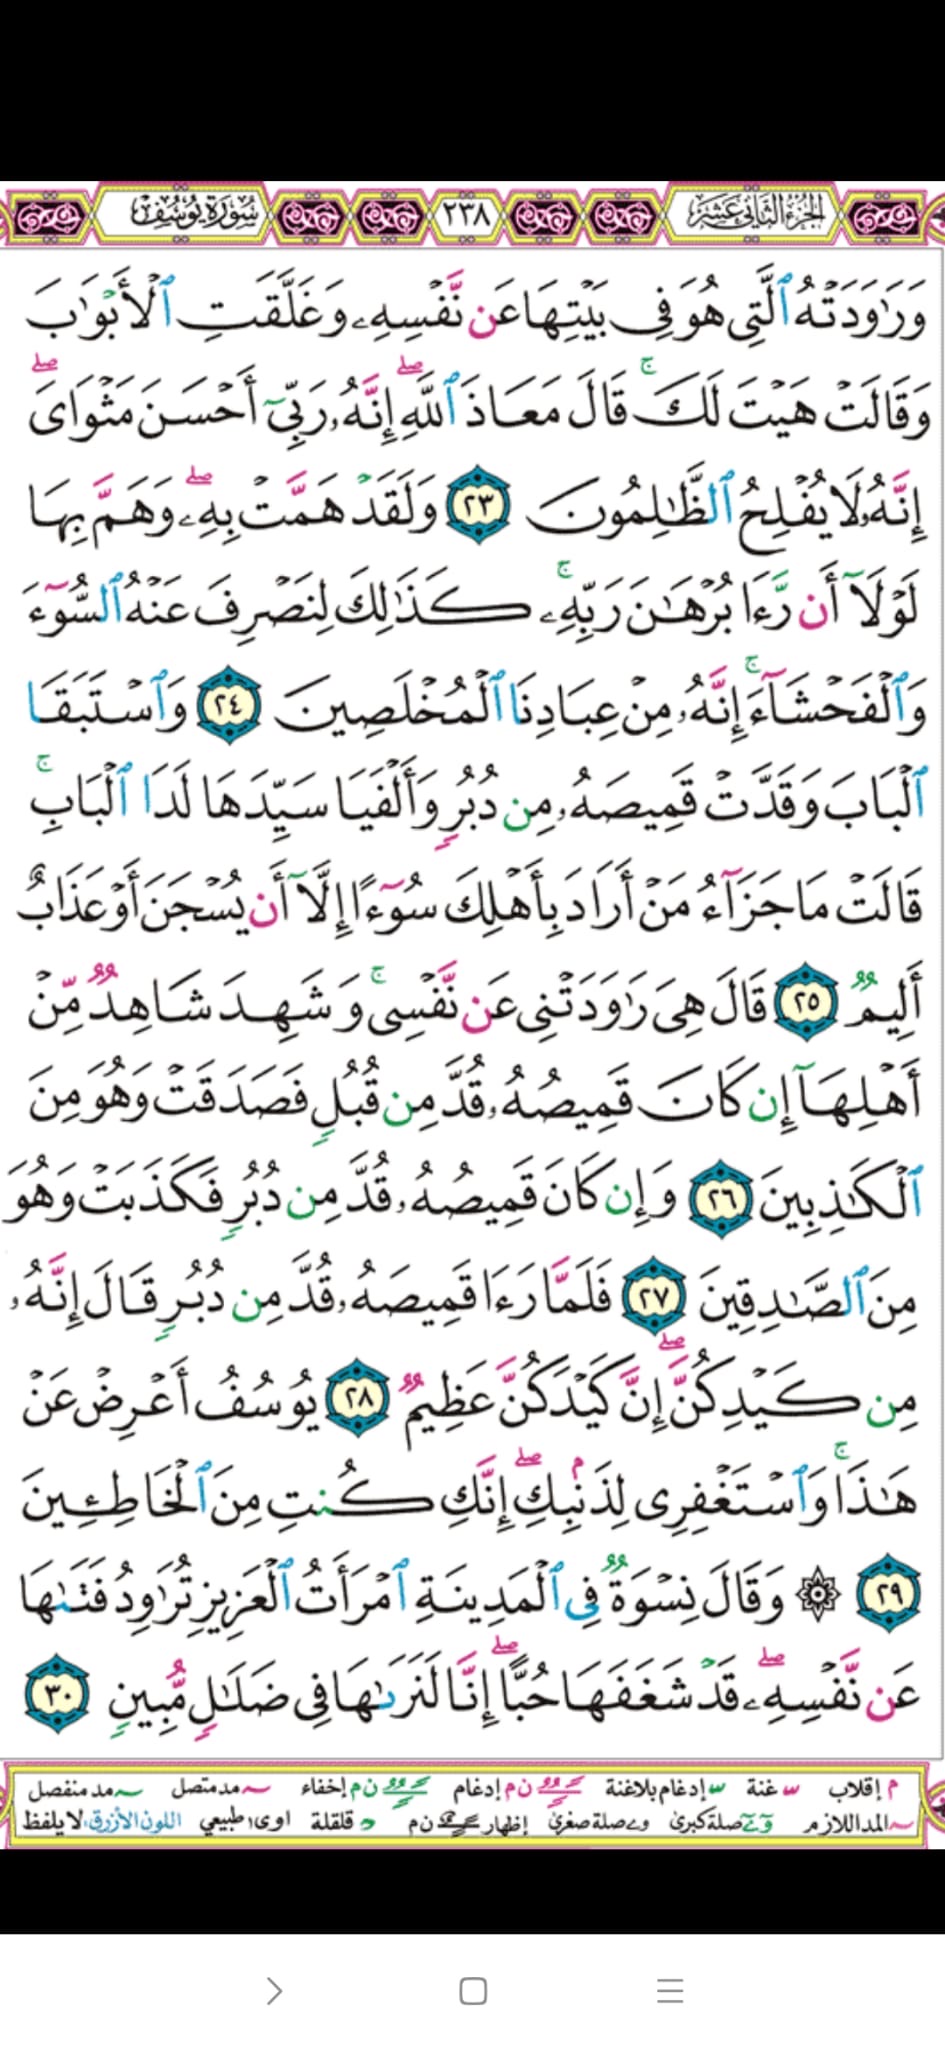 الجزء الثاني عشر ٢٣٨ سورة يوسف
وَرَٰوَدَتْهُ ٱلَّتِى هُوَ فِى بَيْتِهَا عَن نَّفْسِهِۦ وَغَلَّقَتِ ٱلْأَبْوَٰبَ
وَقَالَتْ هَيْتَ لَكَ ۚ قَالَ مَعَاذَ ٱللَّهِ ۖ إِنَّهُۥ رَبِّىٓ أَحْسَنَ مَثْوَاىَ ۖ
إِنَّهُۥ لَا يُفْلِحُ ٱلظَّٰلِمُونَ ٢٣ وَلَقَدْ هَمَّتْ بِهِۦ ۖ وَهَمَّ بِهَا
لَوْلَآ أَن رَّءَا بُرْهَٰنَ رَبِّهِۦ ۚ كَذَٰلِكَ لِنَصْرِفَ عَنْهُ ٱلسُّوٓءَ
وَٱلْفَحْشَآءَ ۚ إِنَّهُۥ مِنْ عِبَادِنَا ٱلْمُخْلَصِينَ ٢٤ وَٱسْتَبَقَا
ٱلْبَابَ وَقَدَّتْ قَمِيصَهُۥ مِن دُبُرٍ وَأَلْفَيَا سَيِّدَهَا لَدَا ٱلْبَابِ ۚ
قَالَتْ مَا جَزَآءُ مَنْ أَرَادَ بِأَهْلِكَ سُوٓءًا إِلَّآ أَن يُسْجَنَ أَوْ عَذَابٌ
أَلِيمٌ ٢٥ قَالَ هِىَ رَٰوَدَتْنِى عَن نَّفْسِى ۚ وَشَهِدَ شَاهِدٌ مِّنْ
أَهْلِهَآ إِن كَانَ قَمِيصُهُۥ قُدَّ مِن قُبُلٍ فَصَدَقَتْ وَهُوَ مِنَ
ٱلْكَٰذِبِينَ ٢٦ وَإِن كَانَ قَمِيصُهُۥ قُدَّ مِن دُبُرٍ فَكَذَبَتْ وَهُوَ
مِنَ ٱلصَّٰدِقِينَ ٢٧ فَلَمَّا رَءَا قَمِيصَهُۥ قُدَّ مِن دُبُرٍ قَالَ إِنَّهُۥ
مِن كَيْدِكُنَّ ۖ إِنَّ كَيْدَكُنَّ عَظِيمٌ ٢٨ يُوسُفُ أَعْرِضْ عَنْ
هَٰذَا ۚ وَٱسْتَغْفِرِى لِذَنۢبِكِ ۖ إِنَّكِ كُنتِ مِنَ ٱلْخَاطِـِٔينَ
٢٩ ۞ وَقَالَ نِسْوَةٌ فِى ٱلْمَدِينَةِ ٱمْرَأَتُ ٱلْعَزِيزِ تُرَٰوِدُ فَتَىٰهَا
عَن نَّفْسِهِۦ ۖ قَدْ شَغَفَهَا حُبًّا ۖ إِنَّا لَنَرَىٰهَا فِى ضَلَٰلٍ مُّبِينٍ ٣٠
م إقلاب غنة إدغام بلاغنة ن م إدغام ن م إخفاء مد متصل مد منفصل
المد اللازم صلة كبرى صلة صغرى إظهار ن م قلقلة اوى طبيعي اللون الأزرق، لا يلفظ